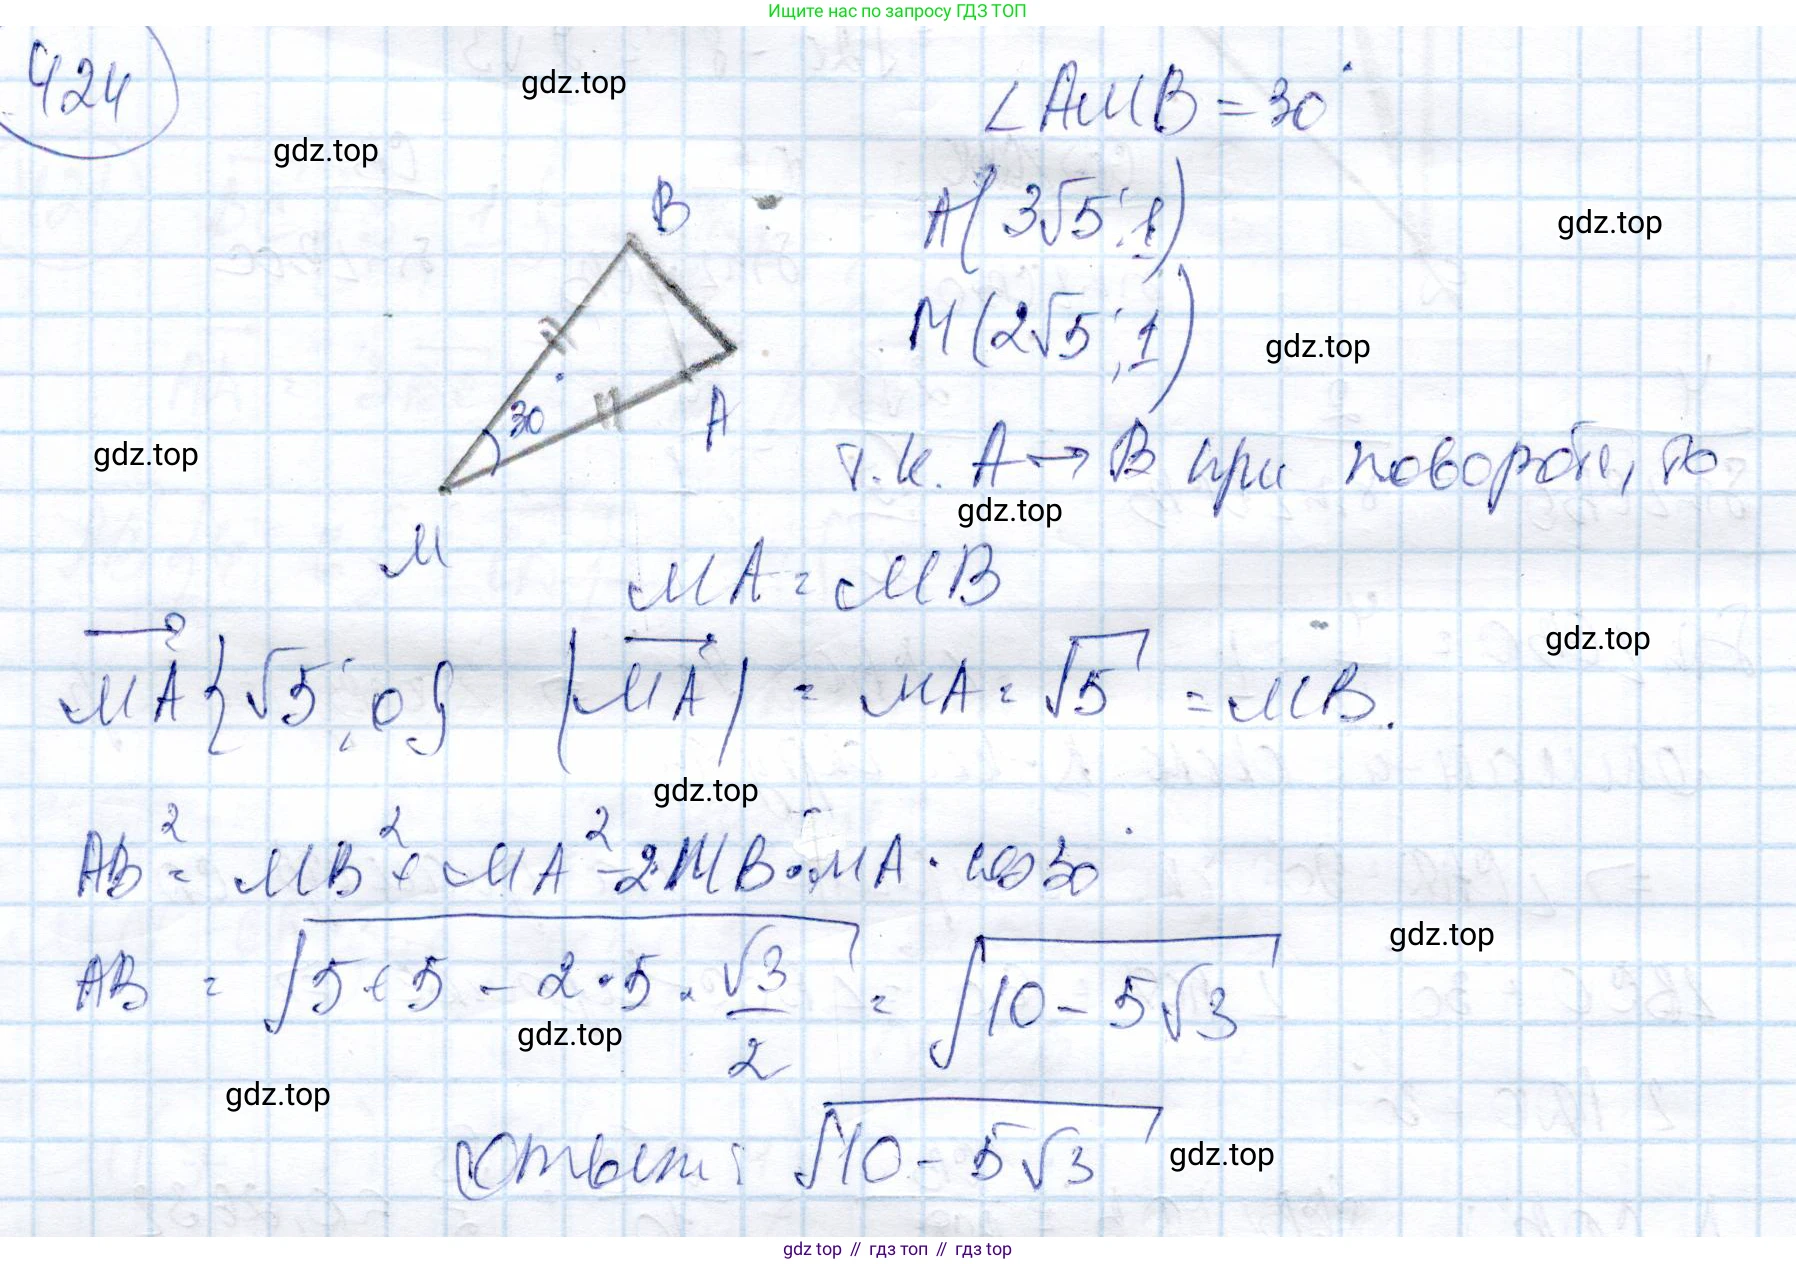 Ищите нас по запросу ГДЗ ТОП
424
gdz.top
∠AMB = 30°
gdz.top
B
A(3√5; 1)
gdz.top
M(2√5; 1)
gdz.top
30
A
gdz.top
т.к. A → B при повороте, то
gdz.top
M
MA = MB
gdz.top
MA{√5; 0} |MA| = MA = √5 = MB.
gdz.top
AB² = MB² + MA² - 2MB·MA·cos30°
gdz.top
AB = √5+5-2·5·√3/2 = √10-5√3
gdz.top
gdz.top
Ответ: √10-5√3
gdz.top
gdz top // гдз топ // гдз top